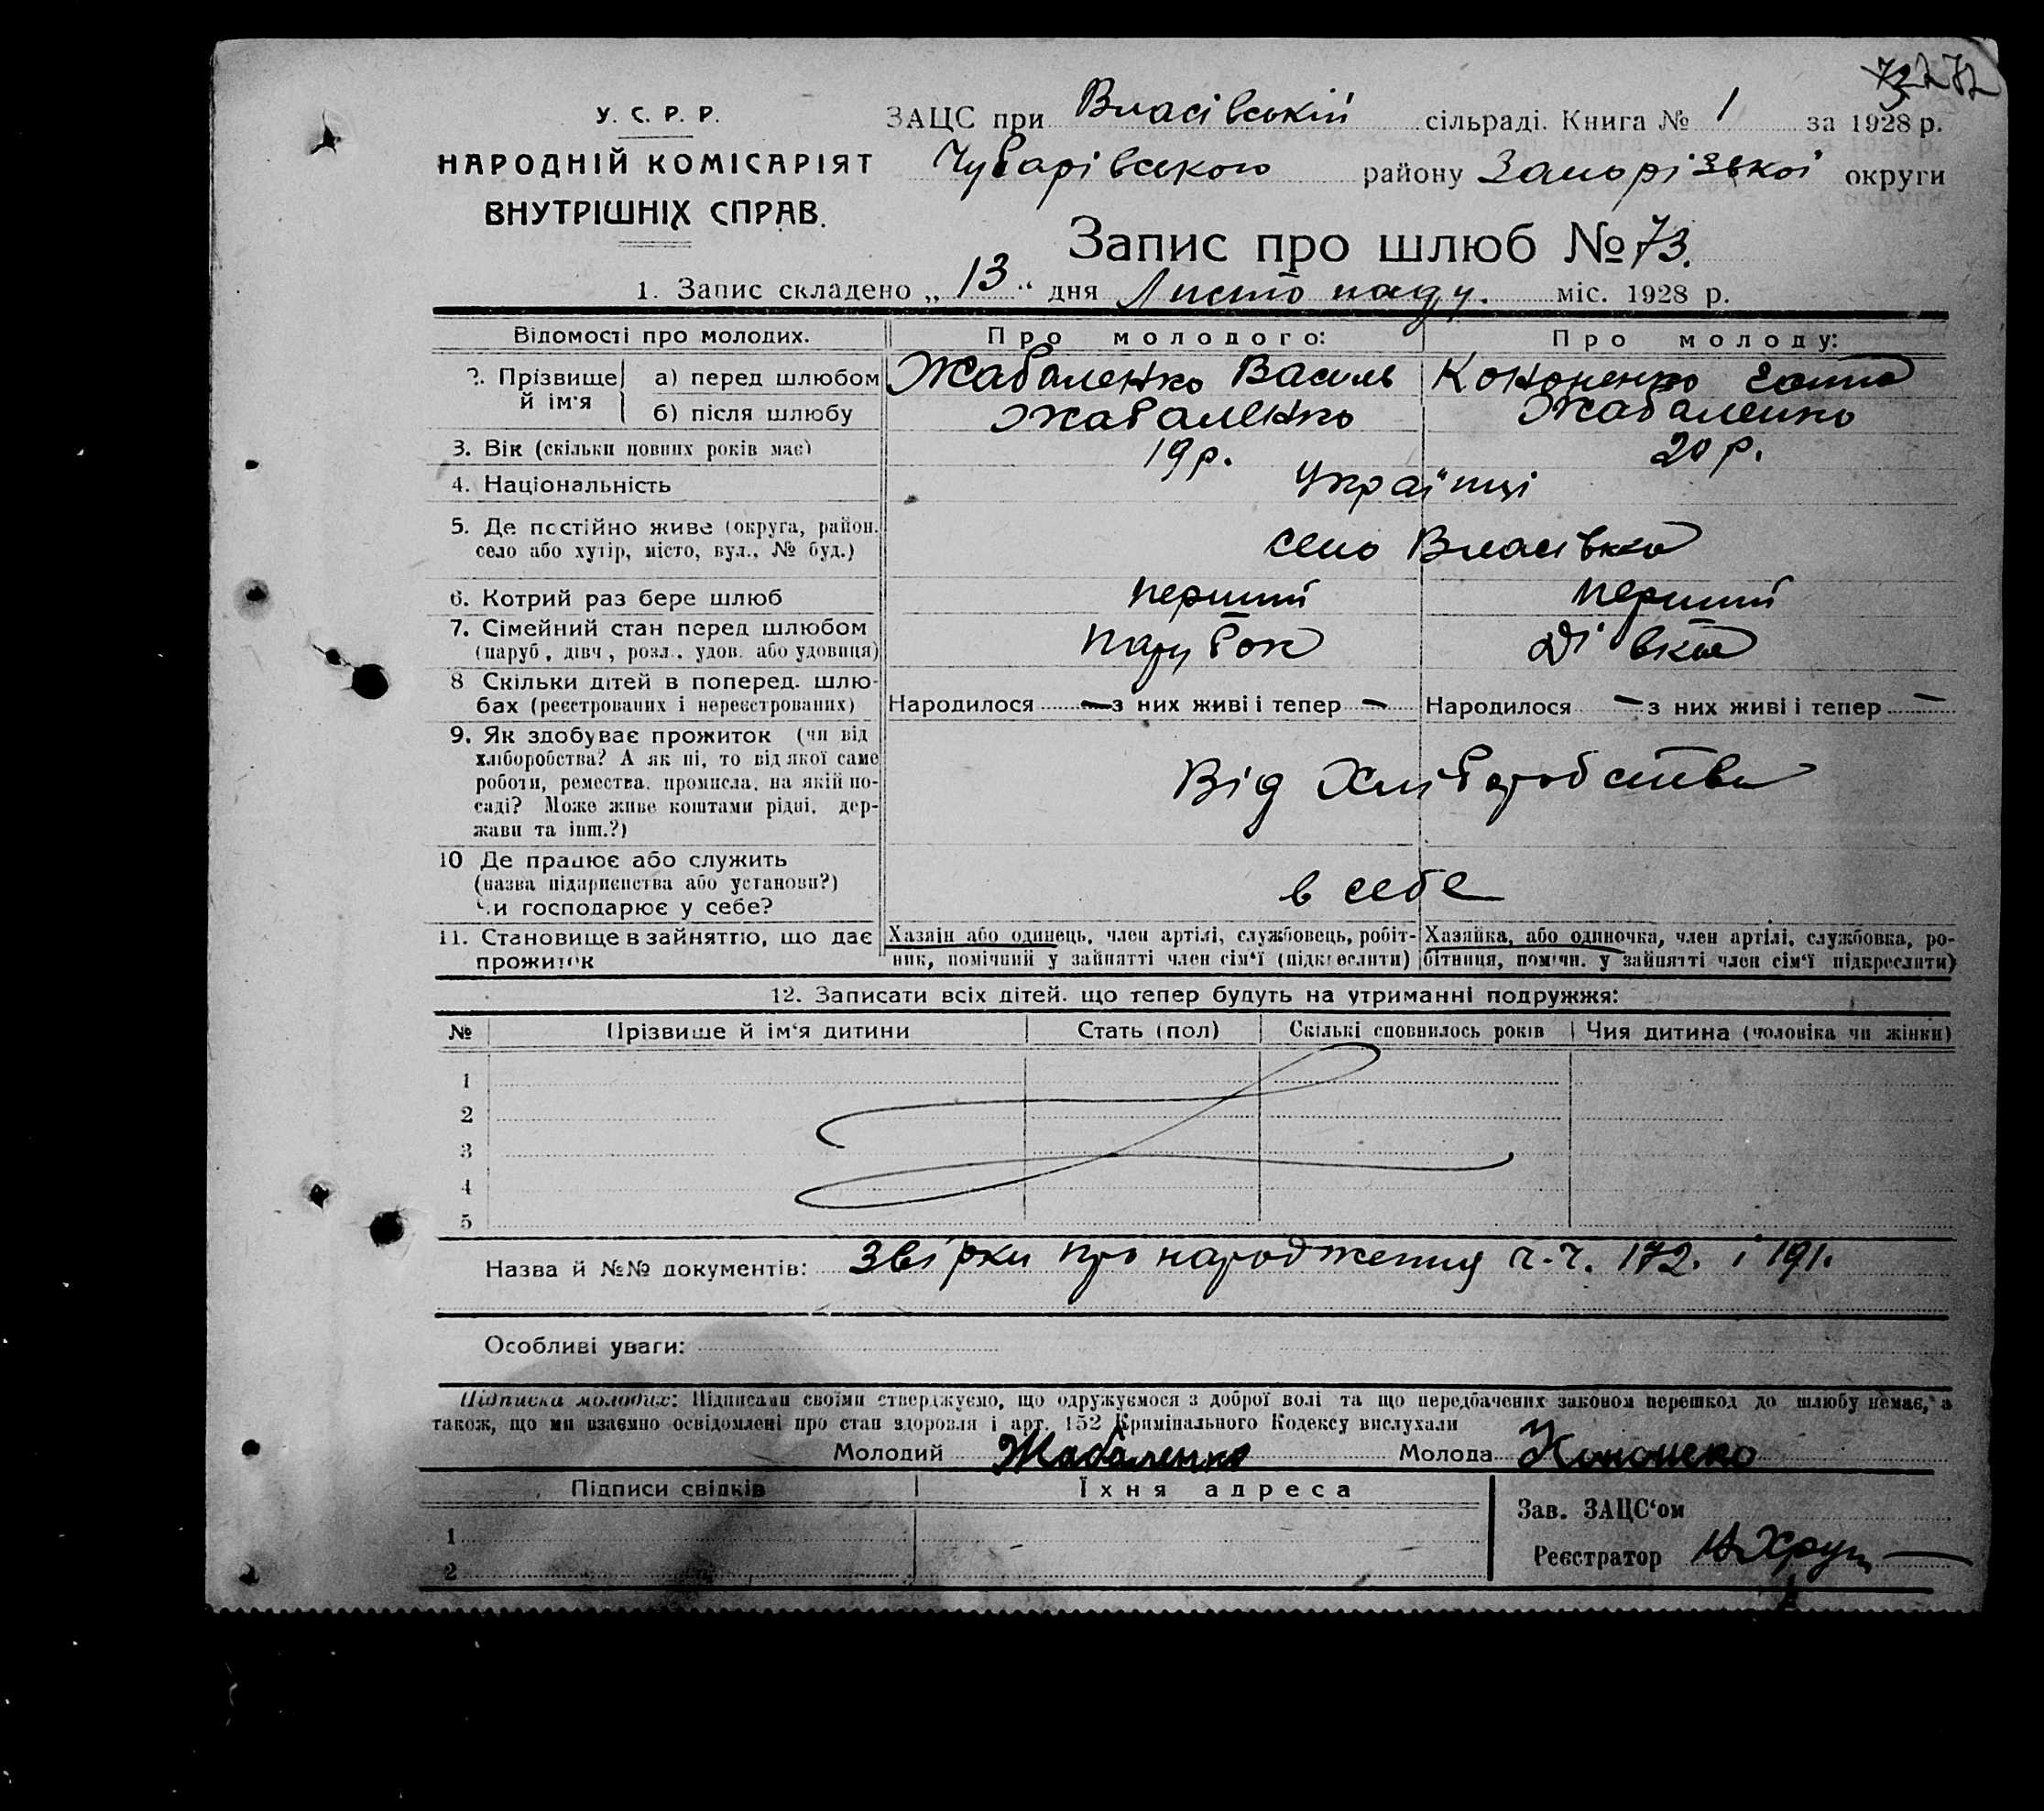 У. С. Р. Р.
НАРОДНІЙ КОМІСАРІЯТ
ВНУТРІШНІХ СПРАВ.
ЗАЦС при Власівській сільраді. Книга № 1 за 1928 р.
Чубарівського району Запорізької округи
Запис про шлюб № 73.
1. Запис складено „13“ дня Листопаду. міс. 1928 р.
Відомості про молодих. Про молодого: Про молоду:
2. Прізвище й ім'я а) перед шлюбом Жабаленко Василь Кононенко
б) після шлюбу Жабаленко Жабаленко
3. Вік (скільки повних років має) 19 р. 20 р.
4. Національність Українці
5. Де постійно живе (округа, район.
село або хутір, місто, вул., № буд.) село Власівка
6. Котрий раз бере шлюб перший перший
7. Сімейний стан перед шлюбом
(паруб., дівч., розл., удов. або удовиця) парубок дівка
8 Скільки дітей в поперед. шлю-
бах (реєстрованих і нереєстрованих) Народилося — з них живі і тепер — Народилося — з них живі і тепер —
9. Як здобуває прожиток (чи від
хліборобства? А як ні, то від якої саме
роботи, ремества, промисла, на якій по-
саді? Може живе коштами рідні, дер-
жави та інш.?) Від Хліборобства
10 Де працює або служить
(назва підприємства або установи?)
Чи господарює у себе? в себе
11. Становище в зайняттю, що дає
прожиток
Хазяїн або одинець, член артілі, службовець, робіт-
ник, помічний у зайнятті член сім'ї (підкреслити)
Хазяйка, або одиночка, член артілі, службовка, ро-
бітниця, помічн. у зайнятті член сім'ї підкреслити)
12. Записати всіх дітей. що тепер будуть на утриманні подружжя:
№ Прізвище й ім'я дитини Стать (пол) Скількі сповнилось років Чия дитина (чоловіка чи жінки)
1
2
3
4
5
Назва й №№ документів: звірки про народження ч.ч. 172. і 191.
Особливі уваги:
Підписка молодих: Підписами своїми стверджуємо, що одружуємося з доброї волі та що передбачених законом перешкод до шлюбу немає, а
також, що ми взаємно освідомлені про стан здоровля і арт. 152 Кримінального Кодексу вислухали
Молодий Жабаленко Молода Кононеко
Підписи свідків Їхня адреса
1
2
Зав. ЗАЦС'ом
Реєстратор